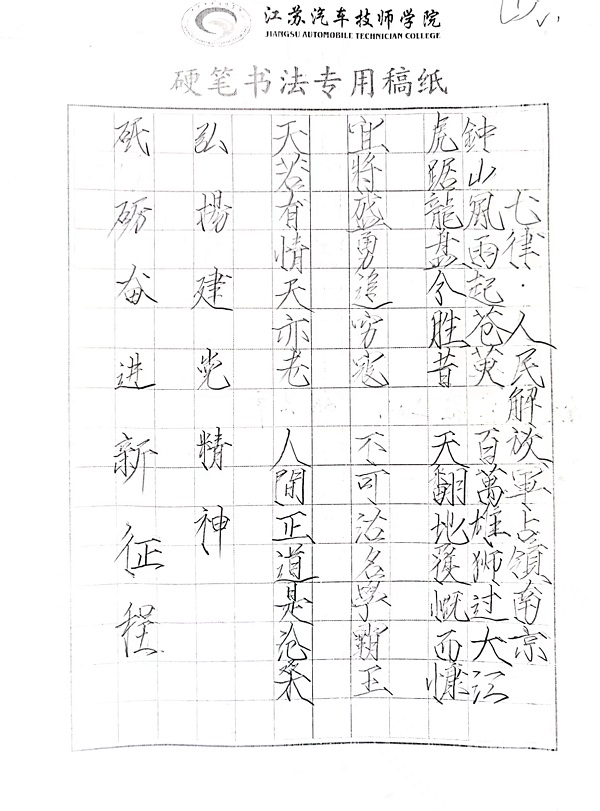 江苏汽车技师学院
JIANGSU AUTOMOBILE TECHNICIAN COLLEGE
硬笔书法专用稿纸
七律·人民解放军占領南京
鈡山風雨起苍黄 百萬雄狮过大江
虎踞龍盘今胜昔 天翻地復慨而慷
宜將剩勇追穷寇 不可沽名學霸王
天若有情天亦老 人間正道是沧桑
弘揚建党精神
砥砺奋进新征程